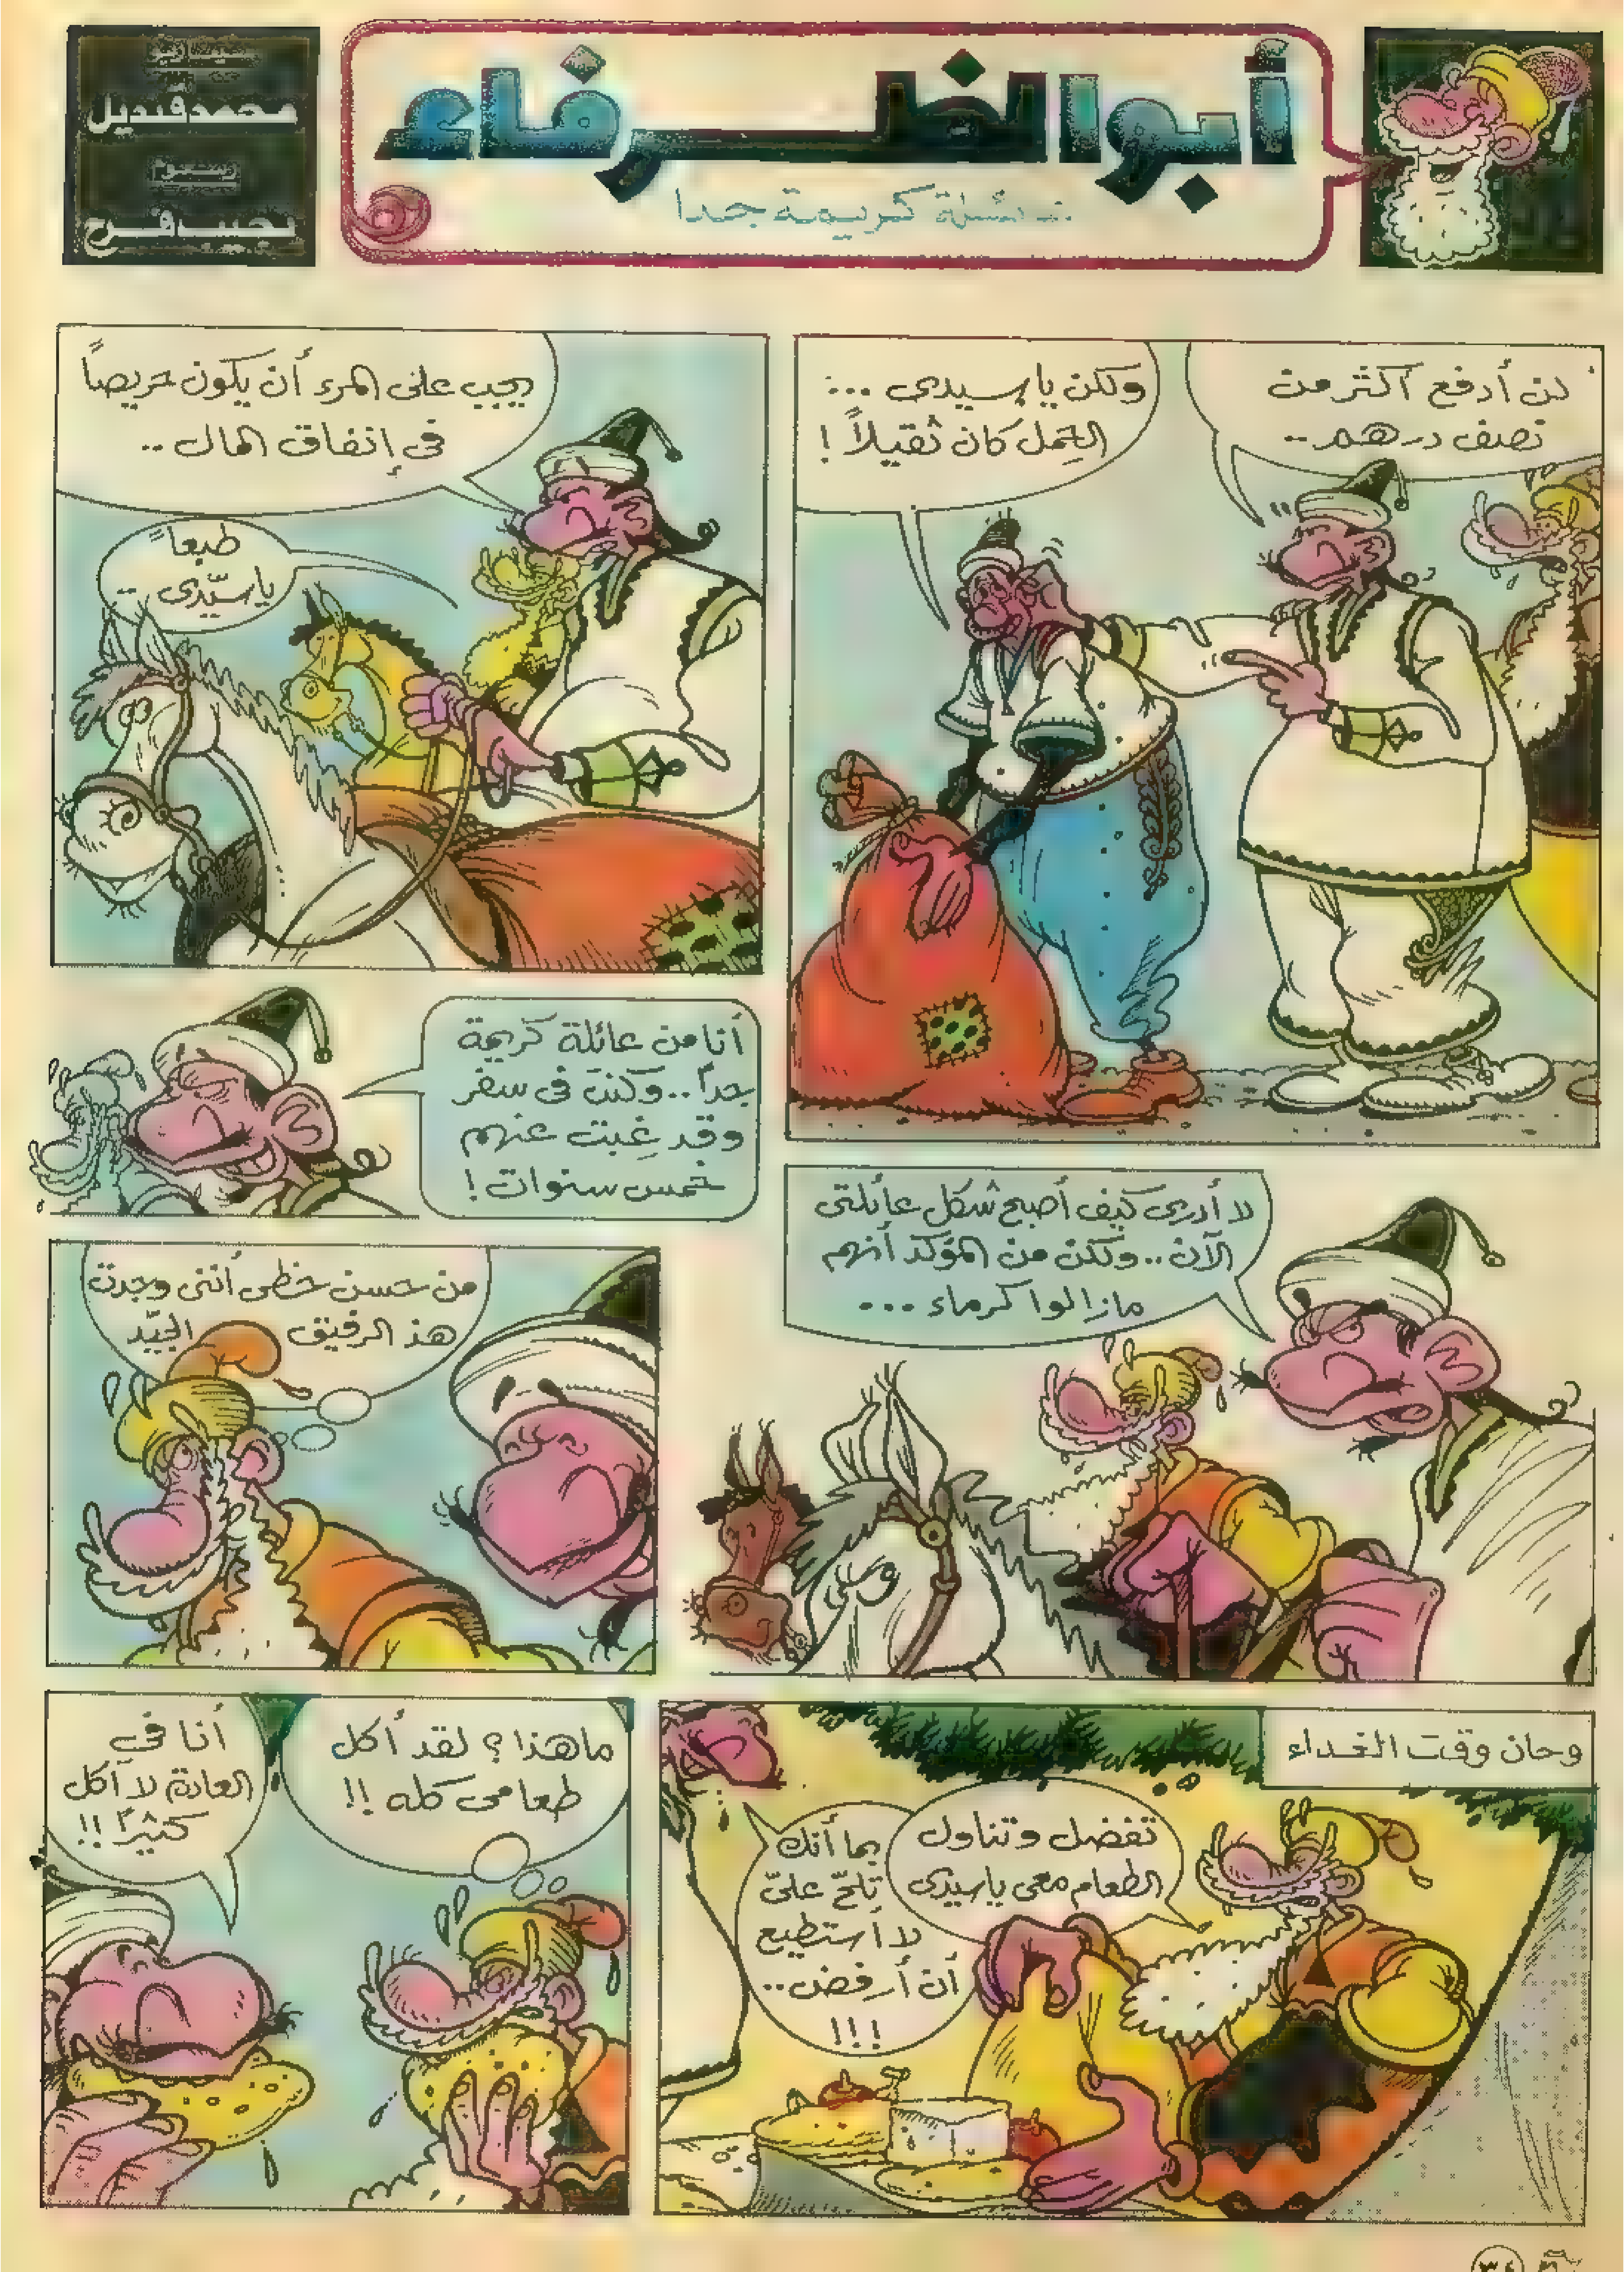 أبو الظرفاء
عائلة كريمة جدا
سيناريو
محمد قنديل
رسوم
نجيب فرح
لن أدفع أكثر من
نصف درهم ..
ولكن يا سيدى ...
الحِمل كان ثقيلاً !
يجب على المرء أن يكون حريصاً
فى إنفاق المال ..
طبعاً
يا سيّدى ..
أنا من عائلة كريمة
جداً .. وكنت فى سفر
وقد غِبت عنهم
خمس سنوات !
لا أدرى كيف أصبح شكل عائلتى
الآن .. ولكن من المؤكد أنهم
مازالوا كرماء ...
من حسن حظى أننى وجدت
هذ الرفيق الجيّد
وحان وقت الغداء
تفضل وتناول
الطعام معى يا سيدى
بما أنك
تلحّ علىّ
لا أستطيع
أن أرفض ..
!!!
ما هذا ؟ لقد أكل
طعامى كله !!
أنا في
العادة لا آكل
كثيراً !!
٣٤